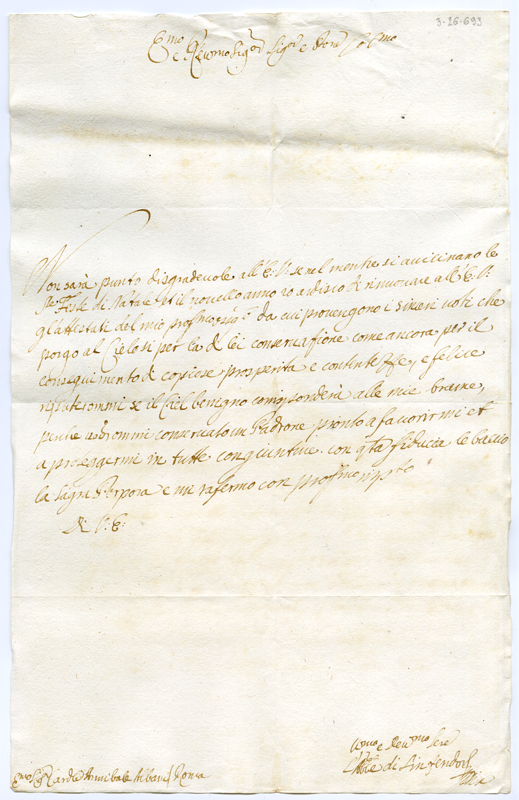 3-26-693
Emo e Revmo Sigr Sigr e Pron Colmo
Non sarà punto disgradevole all'E.V. se nel mentre si avvicinano le
Ste Feste di Natale et il novello anno io ardisco di rinnovare all'E.V.
gl'attestati del mio da cui provengono i sinceri voti che
porgo al Cielo si per la di lei conservazione come ancora per il
conseguimento di copiose prosperità e contentezze, e felice
se il Ciel benegno corrisponderà alle mie brame,
conservato un Padrone pronto a favorirmi et
a proteggermi in tutte congiunture con qta fiducia le baccio
la Sagra Porpora e mi rafermo con profmo rispto
Di V.E.
Umo e Devmo Sere
di Sinzendorf
Emo Sigr Cardle Annibale Albani Roma